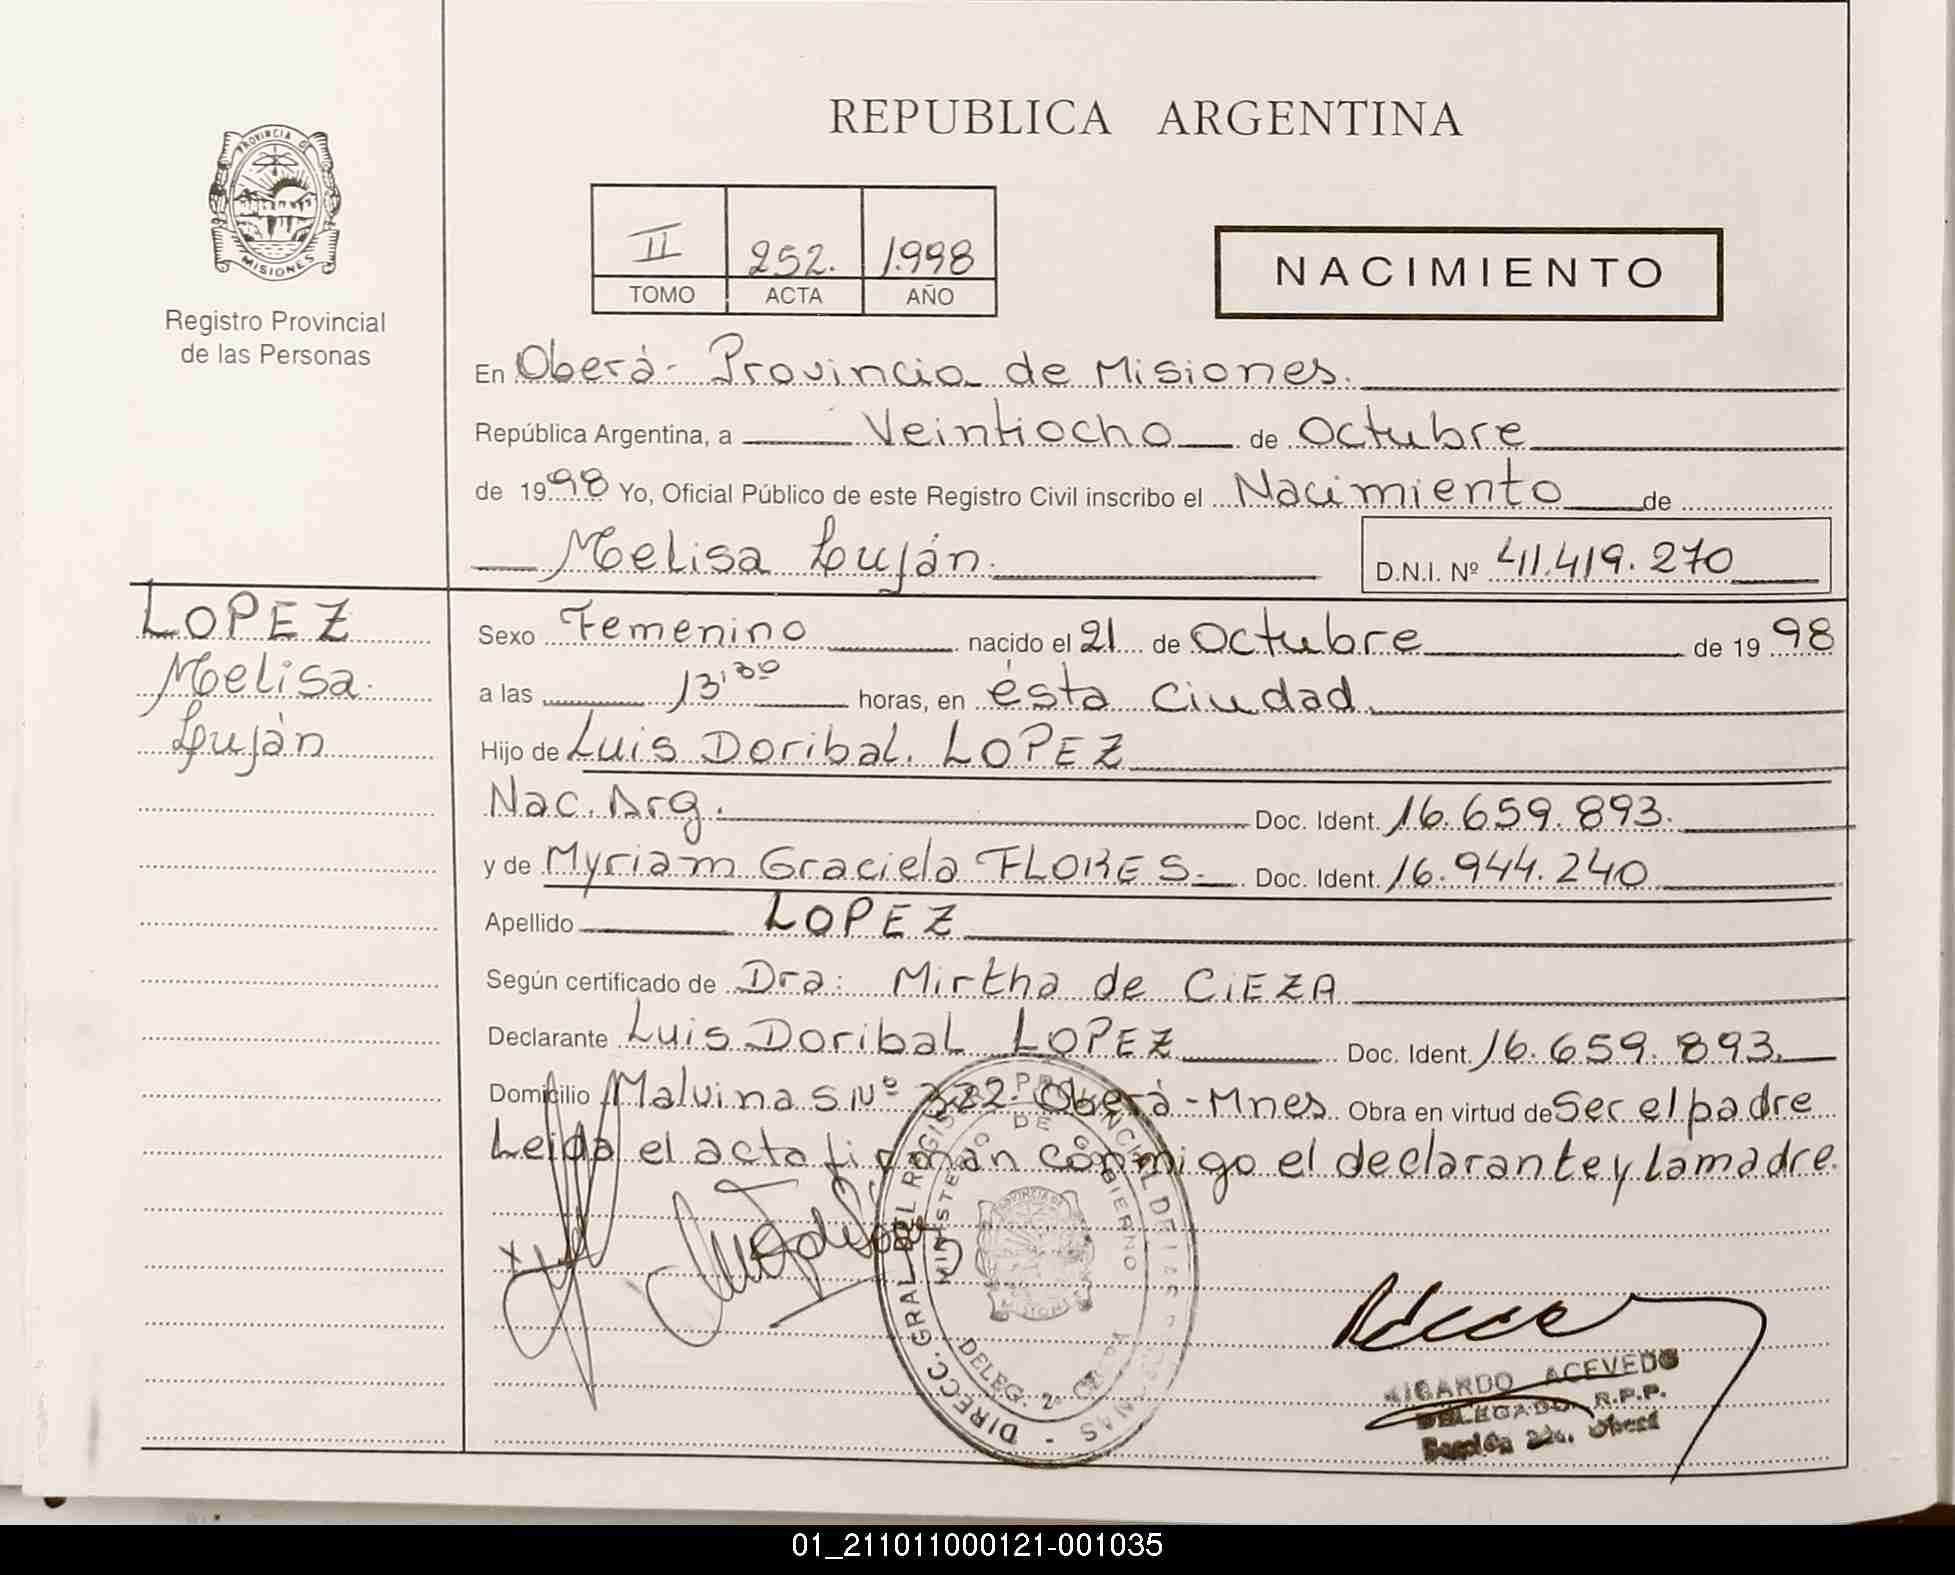 REPUBLICA ARGENTINA
PROVINCIA DE
MISIONES
Registro Provincial
de las Personas
II 252. 1.998
TOMO ACTA AÑO
NACIMIENTO
En Oberá - Provincia de Misiones.
República Argentina, a Veintiocho de Octubre
de 1998 Yo, Oficial Público de este Registro Civil inscribo el Nacimiento de
Melisa Luján.
D.N.I. Nº 411.419.270
LOPEZ
Melisa
Luján
Sexo Femenino nacido el 21 de Octubre de 1998
a las 13,30 horas, en ésta Ciudad.
Hijo de Luis Doribal. LOPEZ
Nac. Arg. Doc. Ident. 16.659.893.
y de Myriam Graciela FLORES. Doc. Ident. 16.944.240
Apellido LOPEZ
Según certificado de Dra: Mirtha de CiEZA
Declarante Luis Doribal LOPEZ Doc. Ident. 16.659.893.
Domicilio Malvinas Nº 322. Oberá - Mnes. Obra en virtud de Ser el padre
Leida el acta firman conmigo el declarante y la madre.
DIRECC. GRAL. DEL REGISTRO PROVINCIAL DE
MINISTERIO DE GOBIERNO
MISIONES
DELEG. 2º
RICARDO ACEVEDO
DELEGADO R.P.P.
Sección 2da. Oberá
01_211011000121-001035